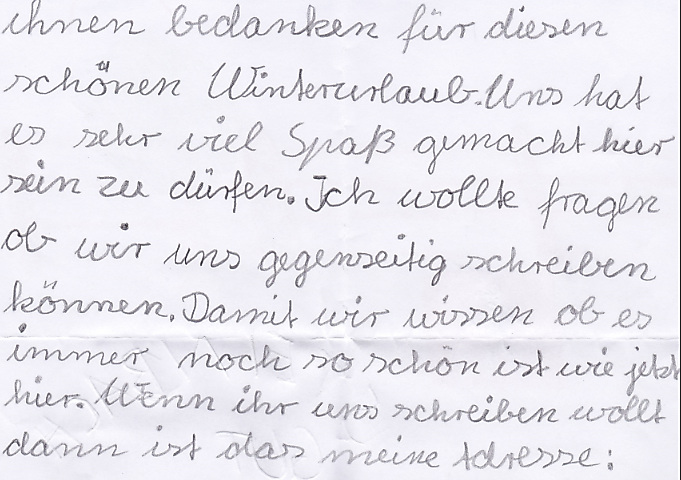 ihnen bedanken für diesen
schönen Winterurlaub. Uns hat
es sehr viel Spaß gemacht hier
sein zu dürfen. Ich wollte fragen
ob wir uns gegenseitig schreiben
können. Damit wir wissen ob es
immer noch so schön ist wie jetzt
hier. Wenn ihr uns schreiben wollt
dann ist das meine Adresse: